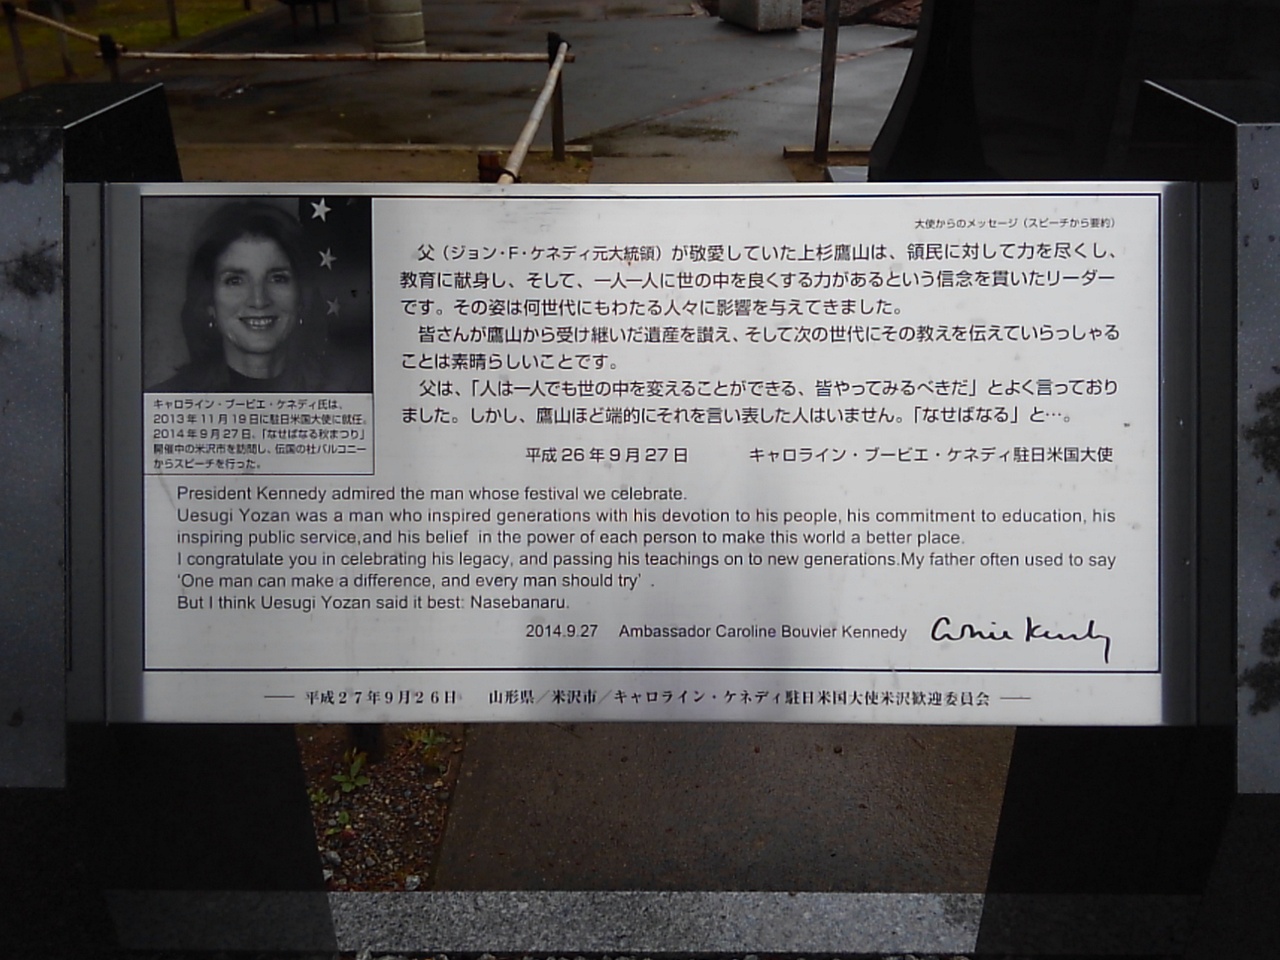 大使からのメッセージ（スピーチから要約）
父（ジョン・F・ケネディ元大統領）が敬愛していた上杉鷹山は、領民に対して力を尽くし、
教育に献身し、そして、一人一人に世の中を良くする力があるという信念を貫いたリーダー
です。その姿は何世代にもわたる人々に影響を与えてきました。
皆さんが鷹山から受け継いだ遺産を讃え、そして次の世代にその教えを伝えていらっしゃる
ことは素晴らしいことです。
父は、「人は一人でも世の中を変えることができる、皆やってみるべきだ」とよく言っており
ました。しかし、鷹山ほど端的にそれを言い表した人はいません。「なせばなる」と…。
平成26年9月27日　キャロライン・ブービエ・ケネディ駐日米国大使
キャロライン・ブービエ・ケネディ氏は、
2013年11月19日に駐日米国大使に就任。
2014年9月27日、「なせばなる秋まつり」
開催中の米沢市を訪問し、伝国の杜バルコニー
からスピーチを行った。
President Kennedy admired the man whose festival we celebrate.
Uesugi Yozan was a man who inspired generations with his devotion to his people, his commitment to education, his
inspiring public service,and his belief in the power of each person to make this world a better place.
I congratulate you in celebrating his legacy, and passing his teachings on to new generations.My father often used to say
‘One man can make a difference, and every man should try’ .
But I think Uesugi Yozan said it best: Nasebanaru.
2014.9.27 Ambassador Caroline Bouvier Kennedy
平成27年9月26日　山形県／米沢市／キャロライン・ケネディ駐日米国大使米沢歓迎委員会